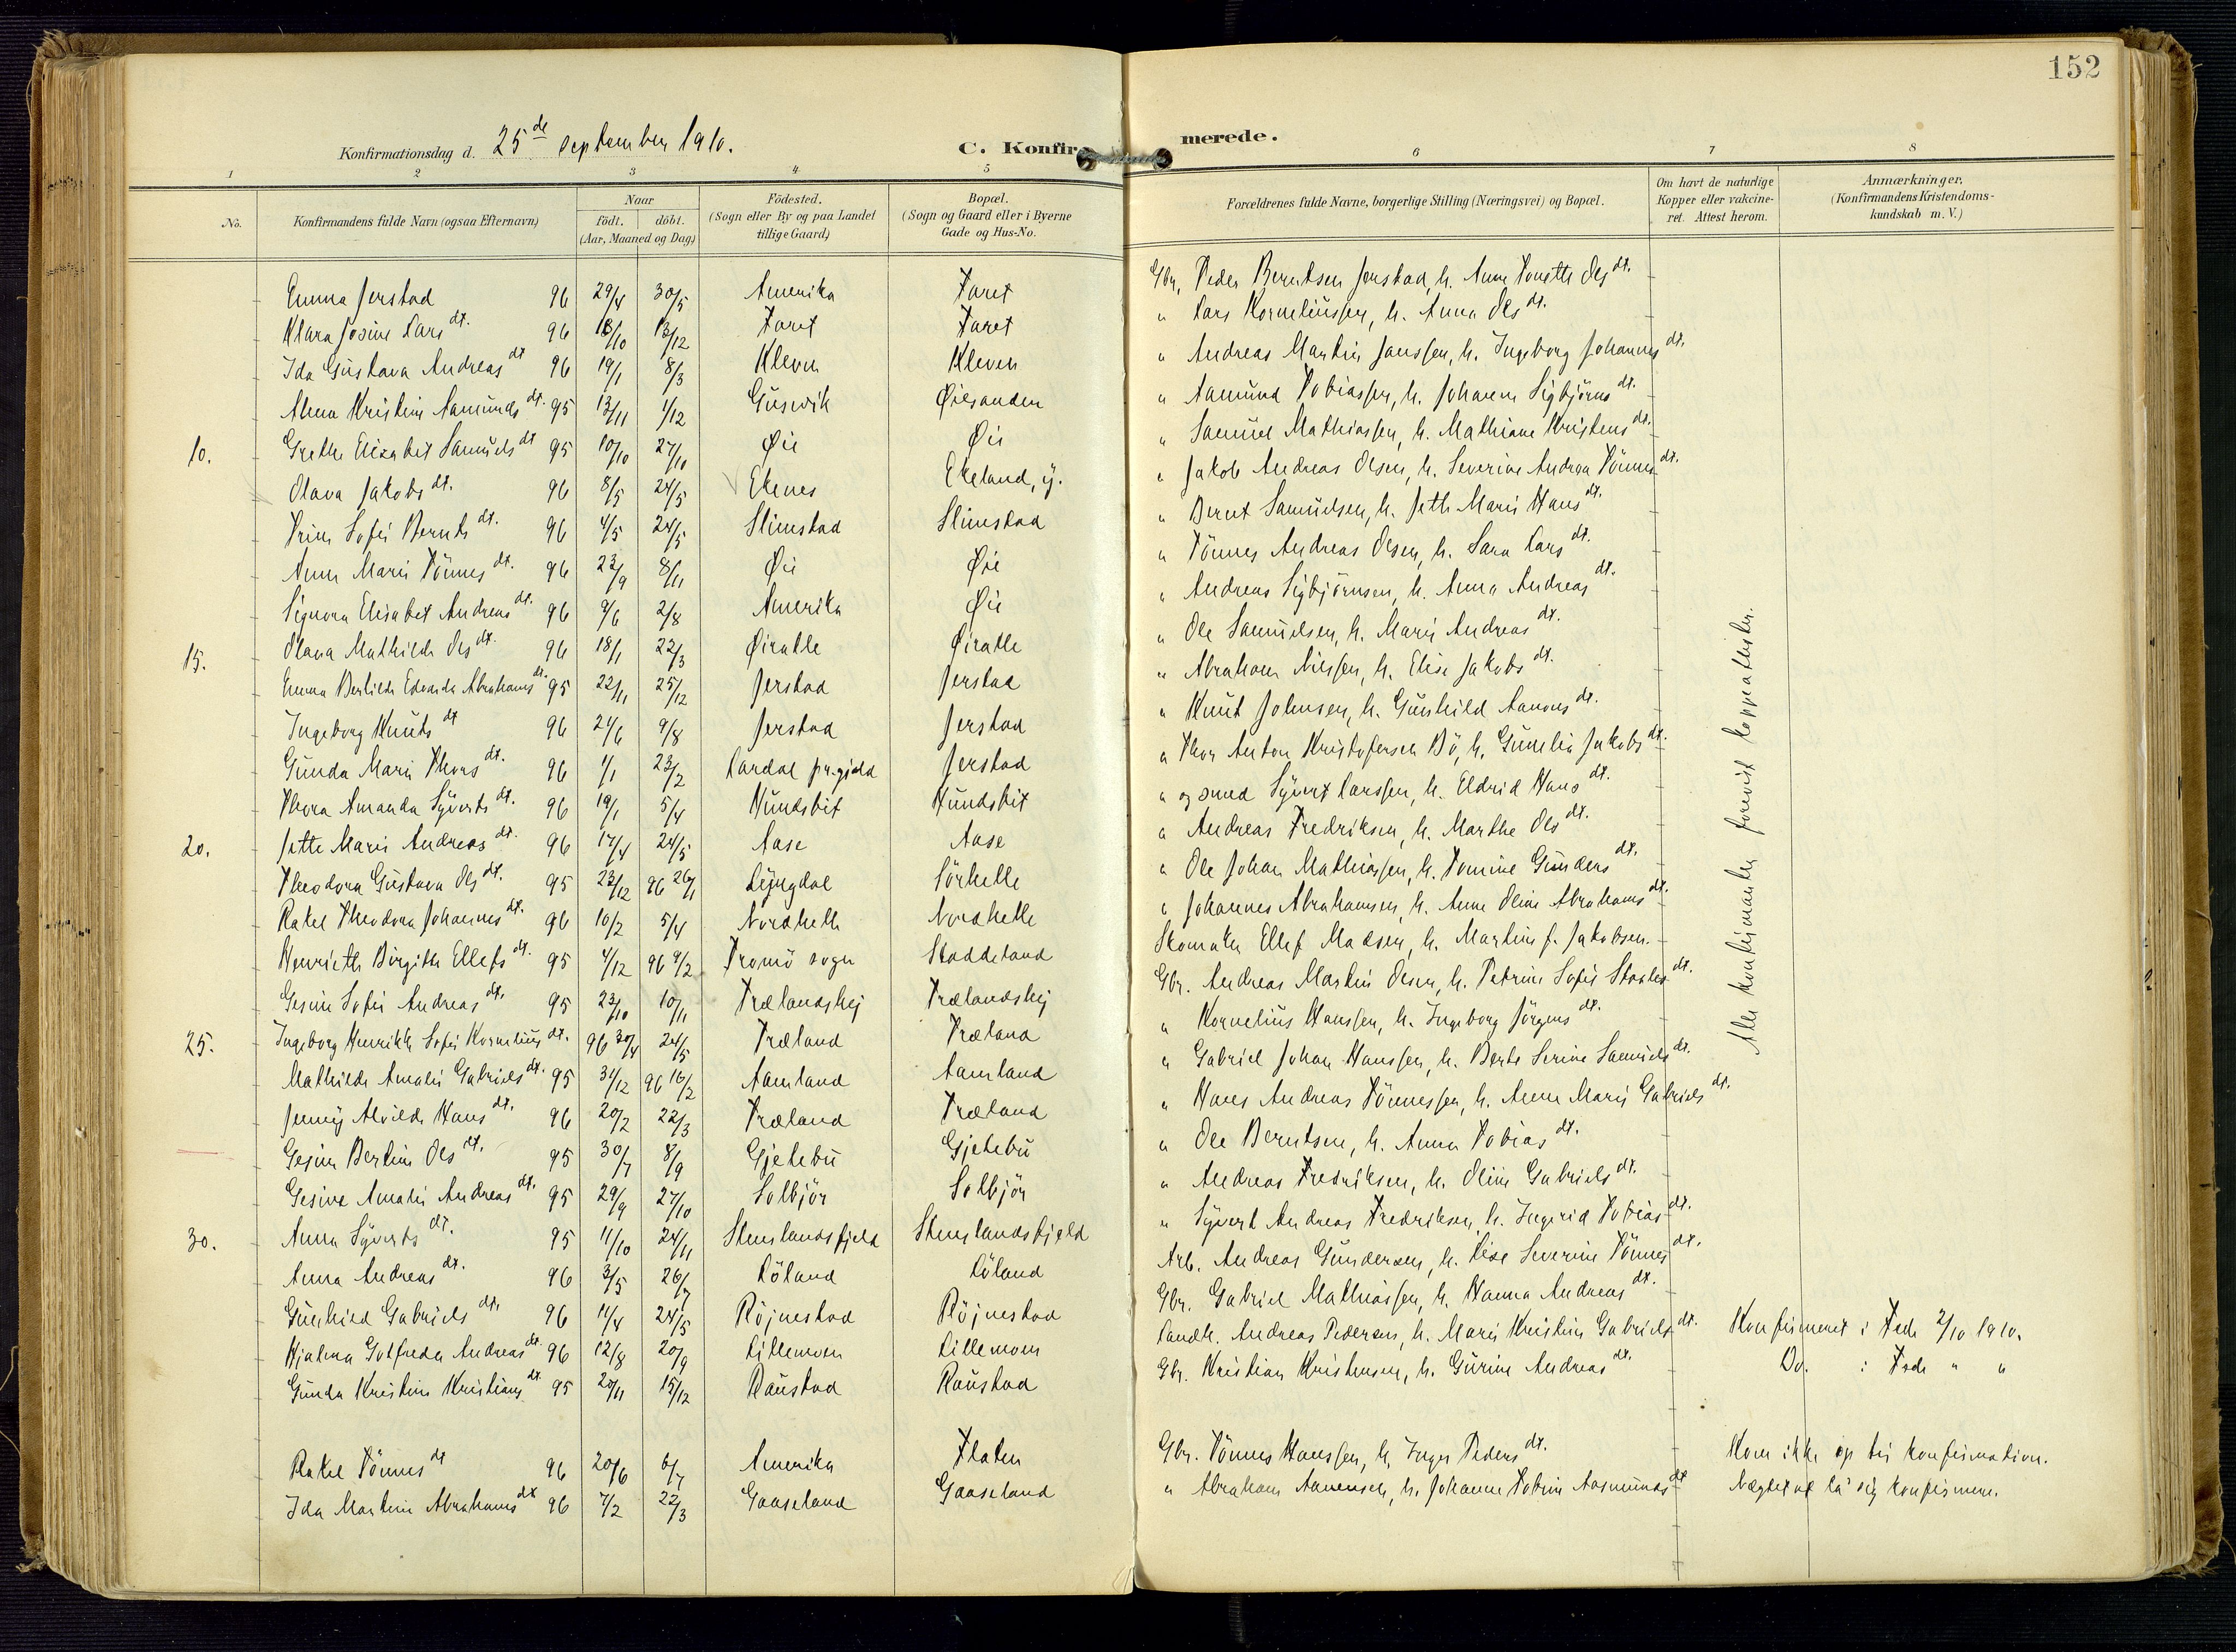 152
Konfirmationsdag d. 25de september 1910.
C. Konfirmerede.
1 2 3 4 5 6 7 8
No. Konfirmandens fulde Navn (ogsaa Efternavn) Naar født. døbt. (Aar, Maaned og Dag) Fødested. (Sogn eller By og paa Landet tillige Gaard) Bopæl. (Sogn og Gaard eller i Byerne Gade og Hus-No. Forældrenes fulde Navne, borgerlige Stilling (Næringsvei) og Bopæl. Om havt de naturlige Kopper eller vakcineret. Attest herom. Anmærkninger. (Konfirmandens Kristendomskundskab m. V.)
Emma Jerstad 96 29/4 30/5 Amerika Faret Gbr. Peder Berntsen Jerstad, h. Anne Tonette Olsdt.
Klara Josine Larsdt. 96 18/10 13/12 Faret Faret " Lars Korneliussen, h. Anna Olsdt.
Ida Gustava Andreasdt 96 19/1 8/3 Kleven Kleven " Andreas Martin Janssen, h. Ingeborg Johannesdt.
Alma Kristine Aamundsdt. 95 13/11 1/12 Gusevik Øiesanden " Aamund Tobiassen, h. Johanne Sigbjørnsdt.
10. Grethe Elisabet Samuelsdt 95 10/10 27/10 Øie Øie " Samuel Mathiassen, h. Mathiane Kristensdt.
Olava Jakobsdt. 96 8/5 24/5 Ekenes Ekeland, y. " Jakob Andreas Olsen, h. Severine Andrea Tönnesdt.
Trine Sofie Berntsdt. 96 4/5 24/5 Slimestad Slimestad " Bernt Samuelsen, h. Jette Marie Hansdt.
Anne Marie Tönnesdt. 96 22/9 8/11 Øie Øie " Tönnes Andreas Olsen, h. Sara Larsdt.
Signora Elisabet Andreasdt. 96 9/6 2/8 Amerika Øie " Andreas Sigbjörnsen, h. Anna Andreasdt.
15. Olava Mathilde Olsdt. 96 18/1 22/3 Øiralle Øiralle " Ole Samuelsen, h. Marie Andreasdt.
Emma Berlilde Edvarda Abrahamsdt. 95 22/11 25/12 Jerstad Jerstad " Abraham Nilssen, h. Elise Jakobsdt.
Ingeborg Knutsdt 96 24/6 9/8 Jerstad Jerstad " Knut Johnsen, h. Gunhild Aanensdt.
Gunda Marie Thorsdt. 96 1/1 23/2 Lardal prgjeld Jerstad " Thor Anton Kristofersen Bö, h. Gunelia Jakobsdt.
Thora Amanda Syvertsdt. 96 19/1 5/4 Hundsbit Hundsbit " og smed Syvert Larssen, h. Eldrid Hansdt.
20. Jette Marie Andreasdt. 96 17/4 24/5 Aase Aase " Andreas Fredriksen, h. Marthe Olsdt.
Theodora Gustava Olsdt. 95 23/12 96 26/1 Lyngdal Sörhelle " Ole Johan Mathiassen, h. Tomine Gundersdt.
Rakel Theodora Johannesdt. 96 10/2 5/4 Nordhelle Nordhelle " Johannes Abrahamsen, h. Anne Oline Abrahamsdt.
Henriette Birgitte Ellefsdt. 95 4/12 96 9/2 Tromö sogn Staddeland Skomaker Ellef Madsen, h. Martine f. Jakobsen.
Gesine Sofie Andreasdt. 95 23/10 10/11 Trælandshej Trælandshej Gbr. Andreas Martin Olsen, h. Petrine Sofie
25. Ingeborg Henrikke Sofie Korneliusdt. 96 30/4 24/5 Træland Træland " Kornelius Hanssen, h. Ingeborg Jörgensdt.
Mathilde Amalie Gabrielsdt. 95 31/12 96 16/2 Aamland Aamland " Gabriel Johan Hanssen, h. Berte Serine Samuelsdt.
Jenny Alvilde Hansdt. 96 20/2 22/3 Træland Træland " Hans Andreas Tönnessen, h. Anne Marie Gabrielsdt.
Gesine Bertine Olsdt. 95 30/7 8/9 Gjetebu Gjetebu " Ole Berntsen, h. Anna Tobiasdt.
Gesine Amalie Andreasdt. 95 29/9 27/10 Solbjör Solbjör " Andreas Fredriksen, h. Oline Gabrielsdt.
30. Anna Syvertsdt. 95 11/10 24/11 Stenslandsfjeld Stenslandsfjeld " Syvert Andreas Fredriksen, h. Ingerid Tobiasdt.
Anna Andreasdt. 96 3/5 26/7 Löland Löland Arb. Andreas Gundersen, h. Lise Severine Tönnesdt.
Gunhild Gabrielsdt. 96 11/4 24/5 Röjnestad Röjnestad Gbr. Gabriel Mathiassen, h. Hanna Andreasdt.
Hjalma Golfreda Andreasdt. 96 12/8 20/9 Lillemoen Lillemoen Landh. Andreas Pedersen, h. Marie Kristine Gabrielsdt. Konfirmeret i Feda 2/10 1910.
Gunda Kristine Kristiansdt. 95 20/11 15/12 Raustad Raustad Gbr. Kristian Kristensen, h. Gurine Andreasdt. Do. i Feda " "
Rakel Tönnesdt 96 20/6 6/7 Amerika Flaten Gbr. Tönnes Hanssen, h. Inger Pedersdt. Kom ikke op til konfirmation.
Ida Martine Abrahamsdt 96 7/2 22/3 Gaaseland Gaaseland " Abraham Aanensen, h. Johanne Tobine Aasmundsdt Nægtet at la' sig konfirmere.
Alle konfirmanter forevist koppeattester.